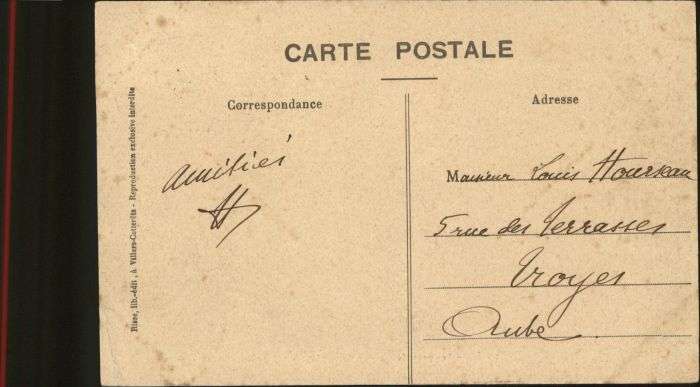 CARTE POSTALE
Correspondance
Amitiés
Adresse
Monsieur Louis
5 rue des Terrasses
Troyes
Aube
Blanc, lib.-édit., à Villers-Cotterêts - Reproduction exclusive interdite